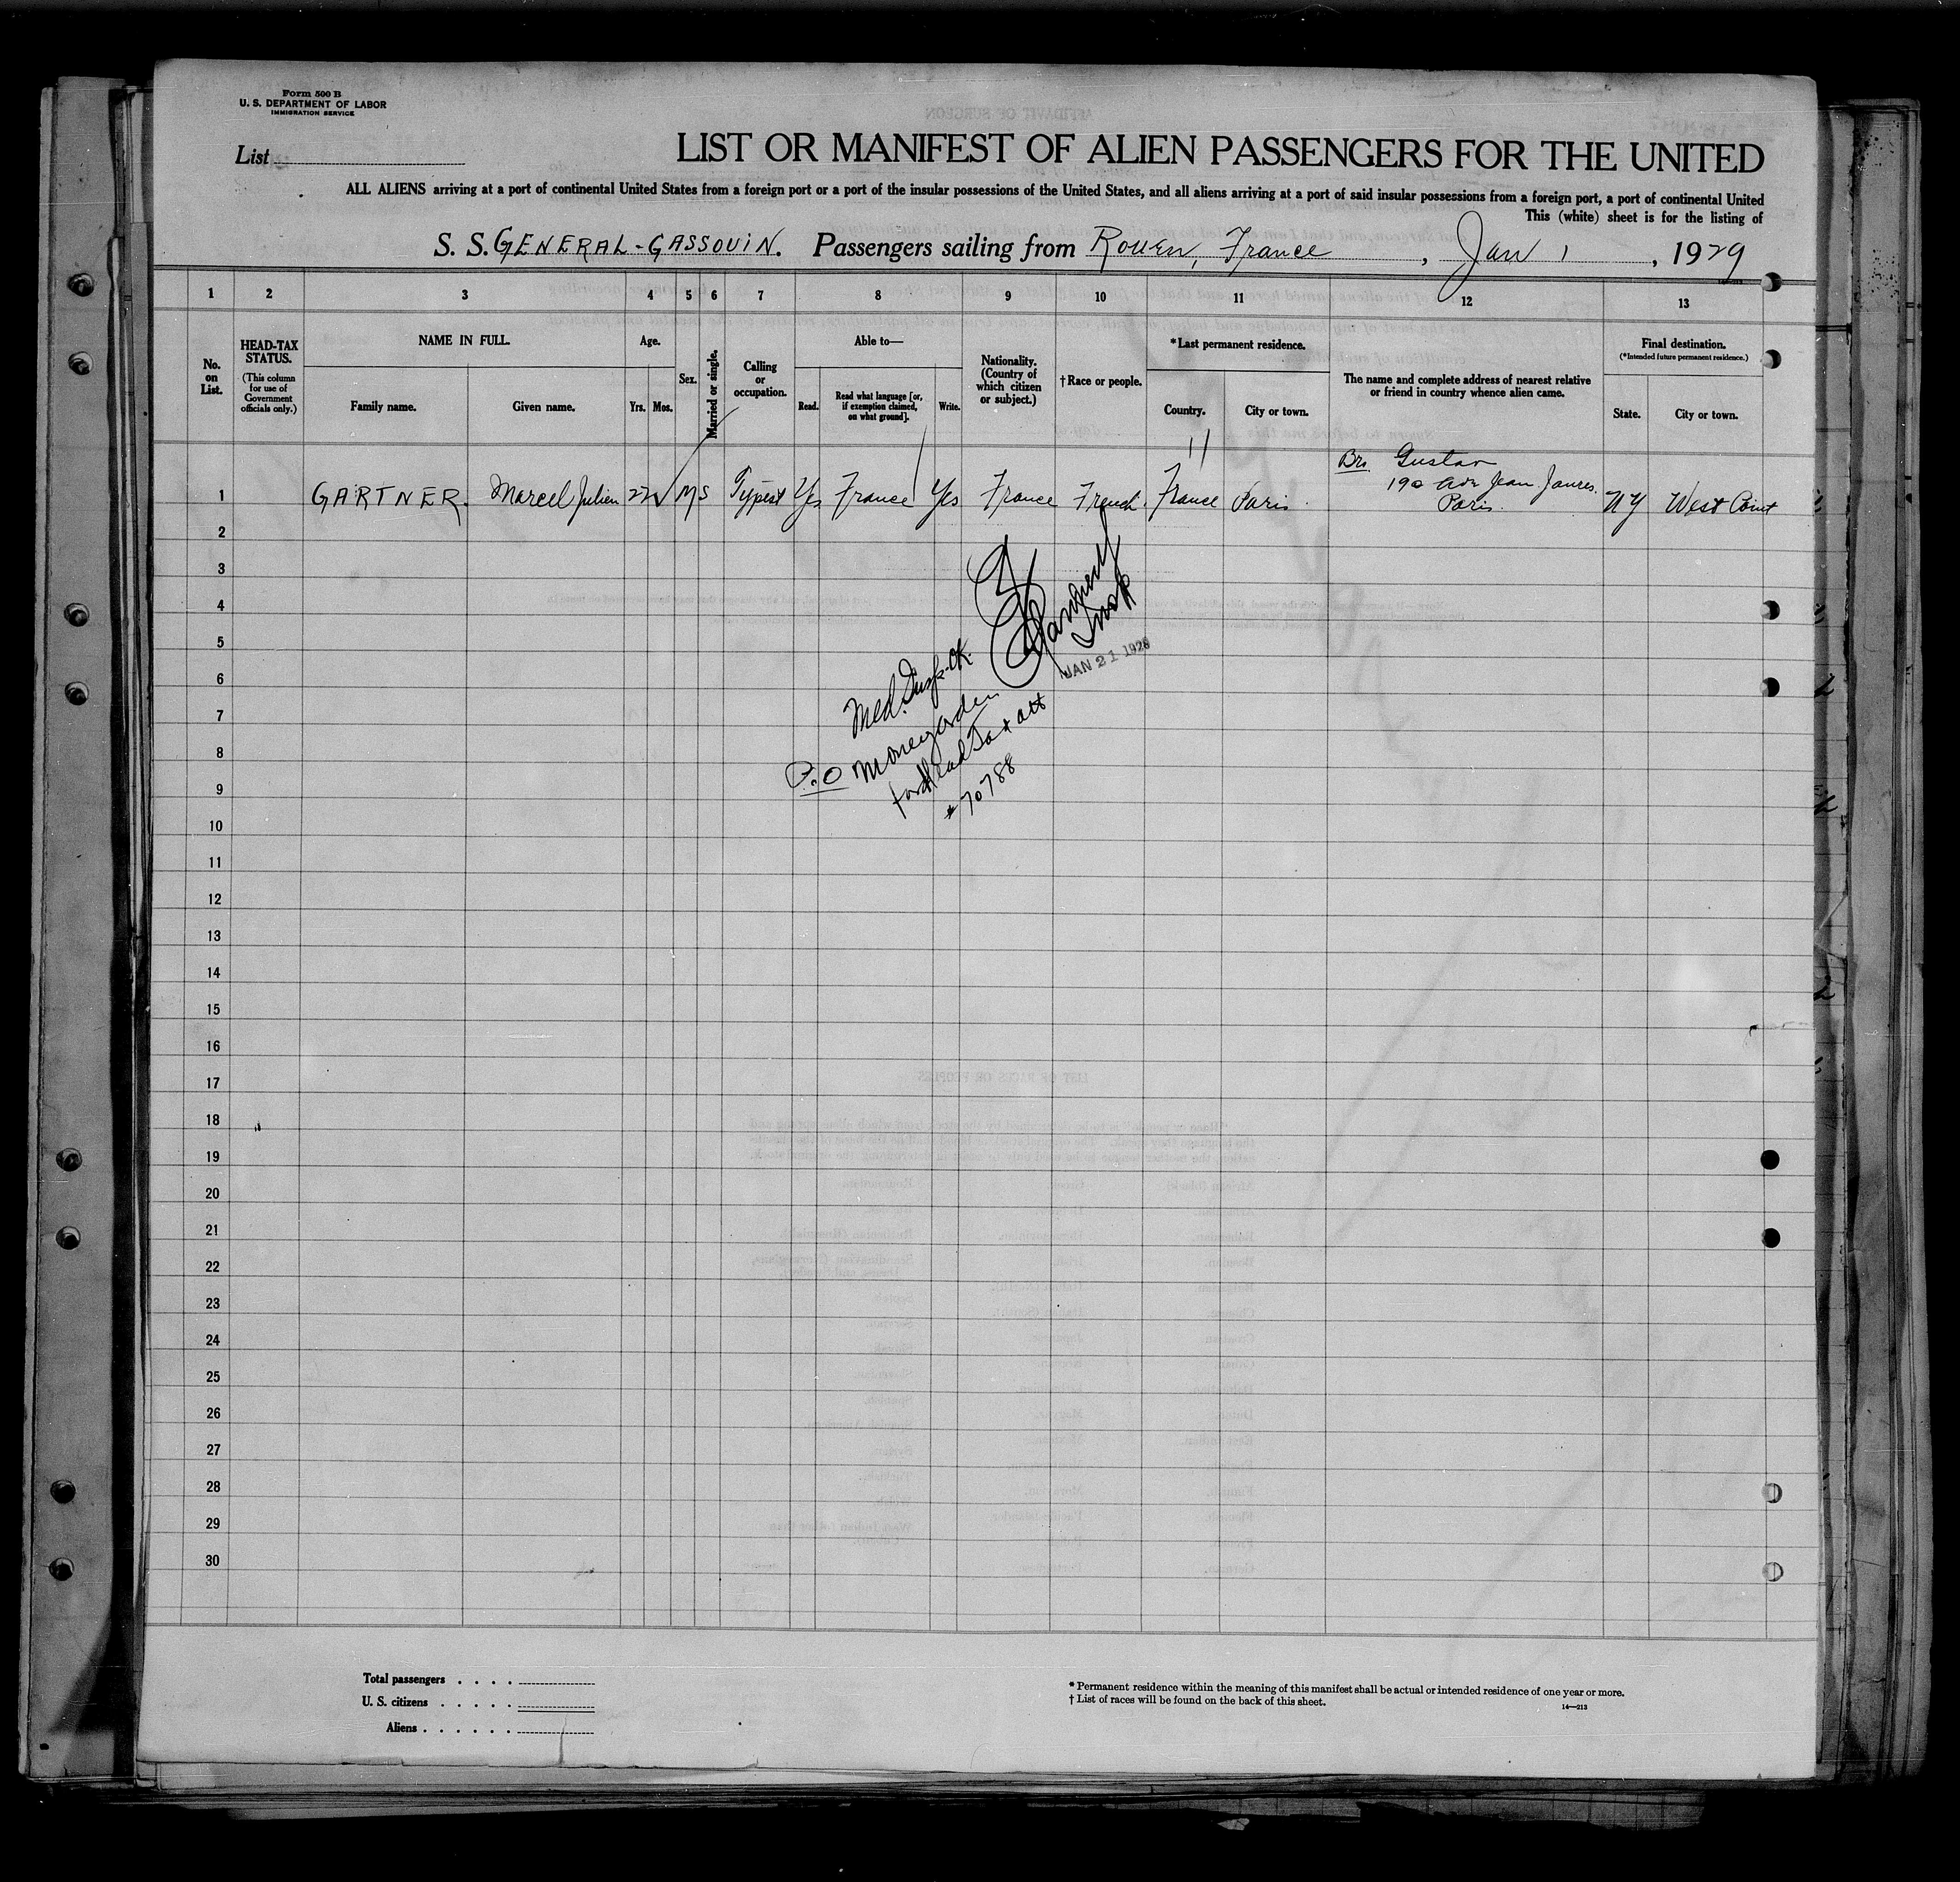 Form 500 B
U. S. DEPARTMENT OF LABOR
IMMIGRATION SERVICE
List
LIST OR MANIFEST OF ALIEN PASSENGERS FOR THE UNITED
ALL ALIENS arriving at a port of continental United States from a foreign port or a port of the insular possessions of the United States, and all aliens arriving at a port of said insular possessions from a foreign port, a port of continental United
This (white) sheet is for the listing of
S. S. GENERAL-GASSOUIN. Passengers sailing from Rouen, France, Jan 1, 1929
1 2 3 4 5 6 7 8 9 10 11 12 13
No. on List.
HEAD-TAX STATUS.
(This column for use of Government officials only.)
NAME IN FULL.
Family name. Given name.
Age.
Yrs. Mos.
Sex.
Married or single.
Calling or occupation.
Able to—
Read. Read what language [or, if exemption claimed, on what ground]. Write.
Nationality. (Country of which citizen or subject.)
† Race or people.
*Last permanent residence.
Country. City or town.
The name and complete address of nearest relative or friend in country whence alien came.
Final destination.
(*Intended future permanent residence.)
State. City or town.
11
Bro. Gustav
190 Jean Jaures.
Paris.
1 GARTNER. Marcel Julien 22 M S Typest Yes France Yes France French. France Paris NY West Point
2
3
4
5
6
7
8
9
10
11
12
13
14
15
16
17
18
19
20
21
22
23
24
25
26
27
28
29
30
Insp
JAN 21 1928
Med. Insp. OK.
P.O Moneyorden
for Head Tax att
#70788
Total passengers . . . .
U. S. citizens . . . . .
Aliens . . . . . .
* Permanent residence within the meaning of this manifest shall be actual or intended residence of one year or more.
† List of races will be found on the back of this sheet.
14—213